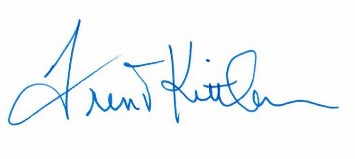 Trent Kittleman